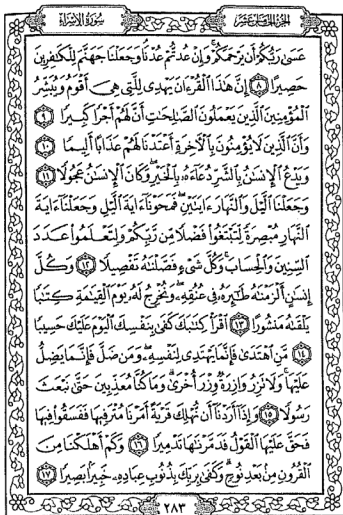 الجزء الخامس عشر
سورة الإسراء
عَسَىٰ رَبُّكُمْ أَن يَرْحَمَكُمْ ۚ وَإِنْ عُدتُّمْ عُدْنَا ۘ وَجَعَلْنَا جَهَنَّمَ لِلْكَافِرِينَ
حَصِيرًا ﴿٨﴾ إِنَّ هَٰذَا الْقُرْءَانَ يَهْدِي لِلَّتِي هِيَ أَقْوَمُ وَيُبَشِّرُ
الْمُؤْمِنِينَ الَّذِينَ يَعْمَلُونَ الصَّالِحَاتِ أَنَّ لَهُمْ أَجْرًا كَبِيرًا ﴿٩﴾
وَأَنَّ الَّذِينَ لَا يُؤْمِنُونَ بِالْآخِرَةِ أَعْتَدْنَا لَهُمْ عَذَابًا أَلِيمًا ﴿١٠﴾
وَيَدْعُ الْإِنسَانُ بِالشَّرِّ دُعَاءَهُ بِالْخَيْرِ ۖ وَكَانَ الْإِنسَانُ عَجُولًا ﴿١١﴾
وَجَعَلْنَا اللَّيْلَ وَالنَّهَارَ ءَايَتَيْنِ ۖ فَمَحَوْنَا ءَايَةَ اللَّيْلِ وَجَعَلْنَا ءَايَةَ
النَّهَارِ مُبْصِرَةً لِّتَبْتَغُوا فَضْلًا مِّن رَّبِّكُمْ وَلِتَعْلَمُوا عَدَدَ
السِّنِينَ وَالْحِسَابَ ۚ وَكُلَّ شَيْءٍ فَصَّلْنَاهُ تَفْصِيلًا ﴿١٢﴾ وَكُلَّ
إِنسَانٍ أَلْزَمْنَاهُ طَائِرَهُ فِي عُنُقِهِ ۖ وَنُخْرِجُ لَهُ يَوْمَ الْقِيَامَةِ كِتَابًا
يَلْقَاهُ مَنشُورًا ﴿١٣﴾ اقْرَأْ كِتَابَكَ كَفَىٰ بِنَفْسِكَ الْيَوْمَ عَلَيْكَ حَسِيبًا
﴿١٤﴾ مَّنِ اهْتَدَىٰ فَإِنَّمَا يَهْتَدِي لِنَفْسِهِ ۖ وَمَن ضَلَّ فَإِنَّمَا يَضِلُّ
عَلَيْهَا ۚ وَلَا تَزِرُ وَازِرَةٌ وِزْرَ أُخْرَىٰ ۗ وَمَا كُنَّا مُعَذِّبِينَ حَتَّىٰ نَبْعَثَ
رَسُولًا ﴿١٥﴾ وَإِذَا أَرَدْنَا أَن نُّهْلِكَ قَرْيَةً أَمَرْنَا مُتْرَفِيهَا فَفَسَقُوا فِيهَا
فَحَقَّ عَلَيْهَا الْقَوْلُ فَدَمَّرْنَاهَا تَدْمِيرًا ﴿١٦﴾ وَكَمْ أَهْلَكْنَا مِنَ
الْقُرُونِ مِنْ بَعْدِ نُوحٍ ۗ وَكَفَىٰ بِرَبِّكَ بِذُنُوبِ عِبَادِهِ خَبِيرًا بَصِيرًا ﴿١٧﴾
٢٨٣